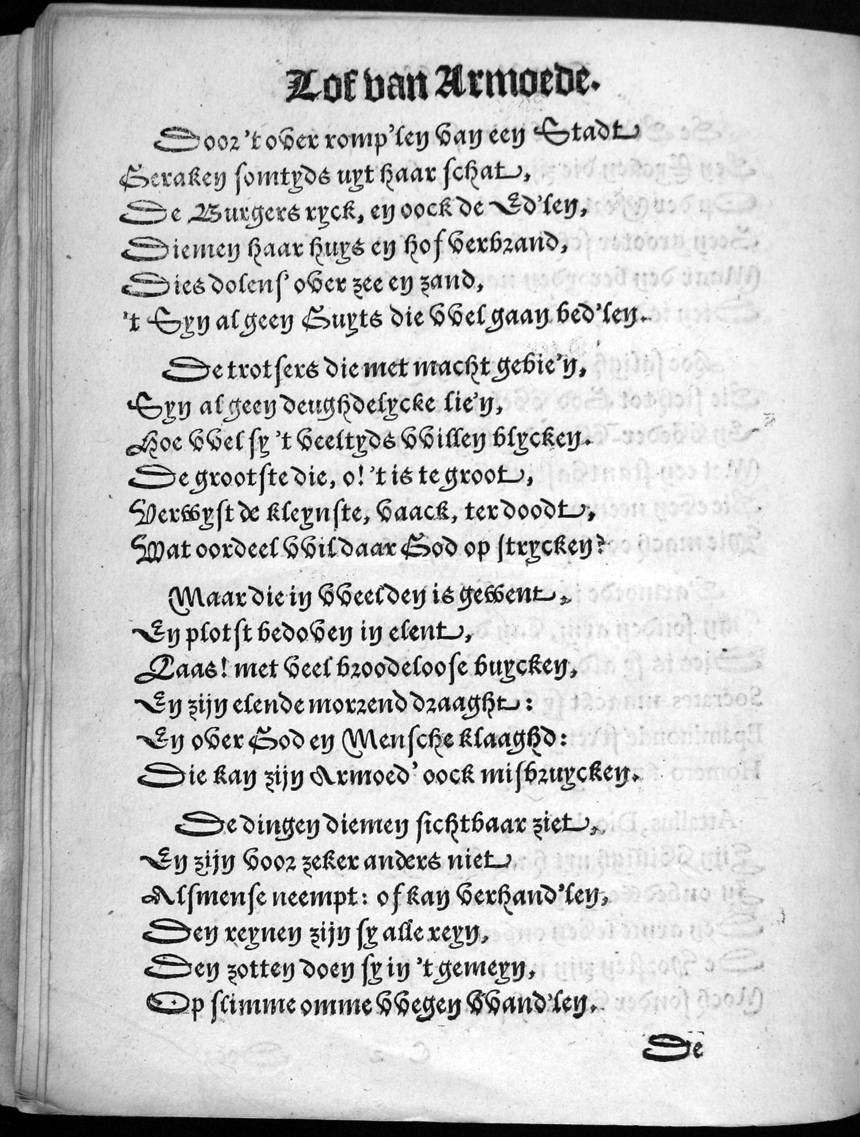 Lof van Armoede.
Door 't over romp'len van een Stadt
Geraken somtyds uyt haar schat,
De Burgers ryck, en oock de Ed'len,
Diemen haar huys en hof verbrand,
Dies dolens' over zee en zand,
't Syn al geen Guyts die vvel gaan bed'len.
De trotsers die met macht gebie'n,
Syn al geen deughdelycke lie'n,
Hoe vvel sy 't veeltyds vvillen blycken.
De grootste die, o! 't is te groot,
Verwyst de kleynste, vaack, ter doodt,
Wat oordeel vvil daar God op strycken?
Maar die in vveelden is gewent,
En plotst bedoven in elent,
Laas! met veel broodeloose buycken,
En zijn elende morrend draaght:
En over God en Mensche klaaghd:
Die kan zijn Armoed' oock misbruycken.
De dingen diemen sichtbaar ziet,
En zijn voor zeker anders niet
Alsmense neempt: of kan verhand'len,
Den reynen zijn sy alle reyn,
Den zotten doen sy in 't gemeyn,
Op slimme omme vvegen vvand'len.
De